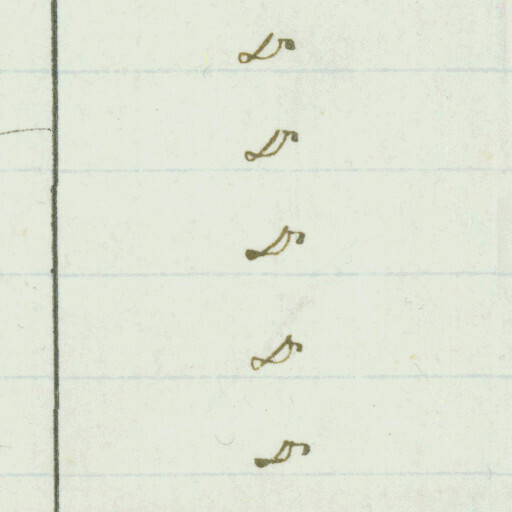 Do
Do
Do
Do
Do